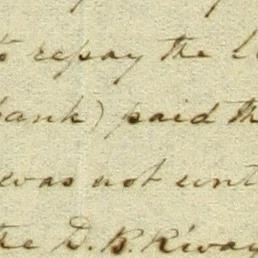 to repay the l
bank) paid th
was not ent
the D. B. R'way